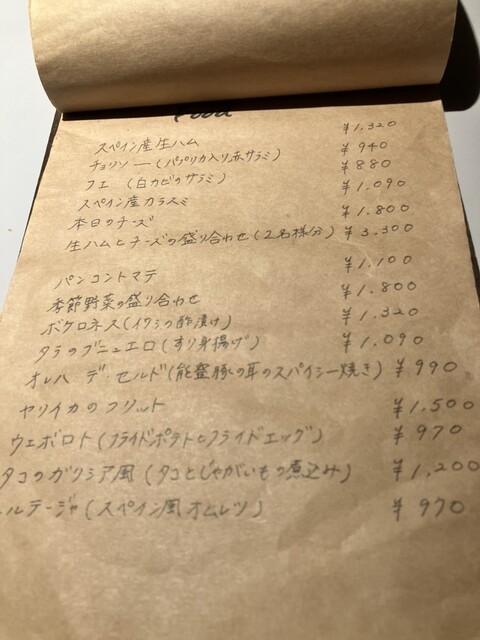 Food
スペイン産生ハム ¥1,320
チョリソー(パプリカ入り赤サラミ) ¥940
フエ(白カビのサラミ) ¥880
スペイン産カラスミ ¥1,090
本日のチーズ ¥1,800
生ハムとチーズの盛り合わせ(2名様分) ¥3,300
パンコントマテ ¥1,100
季節野菜の盛り合わせ ¥1,800
ボケロネス(イワシの酢漬け) ¥1,320
タラのブニュエロ(すり身揚げ) ¥1,090
オレハ デ・セルド(能登豚の耳のスパイシー焼き) ¥990
ヤリイカのフリット ¥1,500
ウェボロト(フライドポテトとフライドエッグ) ¥970
タコのガリシア風(タコとじゃがいもの煮込み) ¥1,200
ルテージャ(スペイン風オムレツ) ¥970